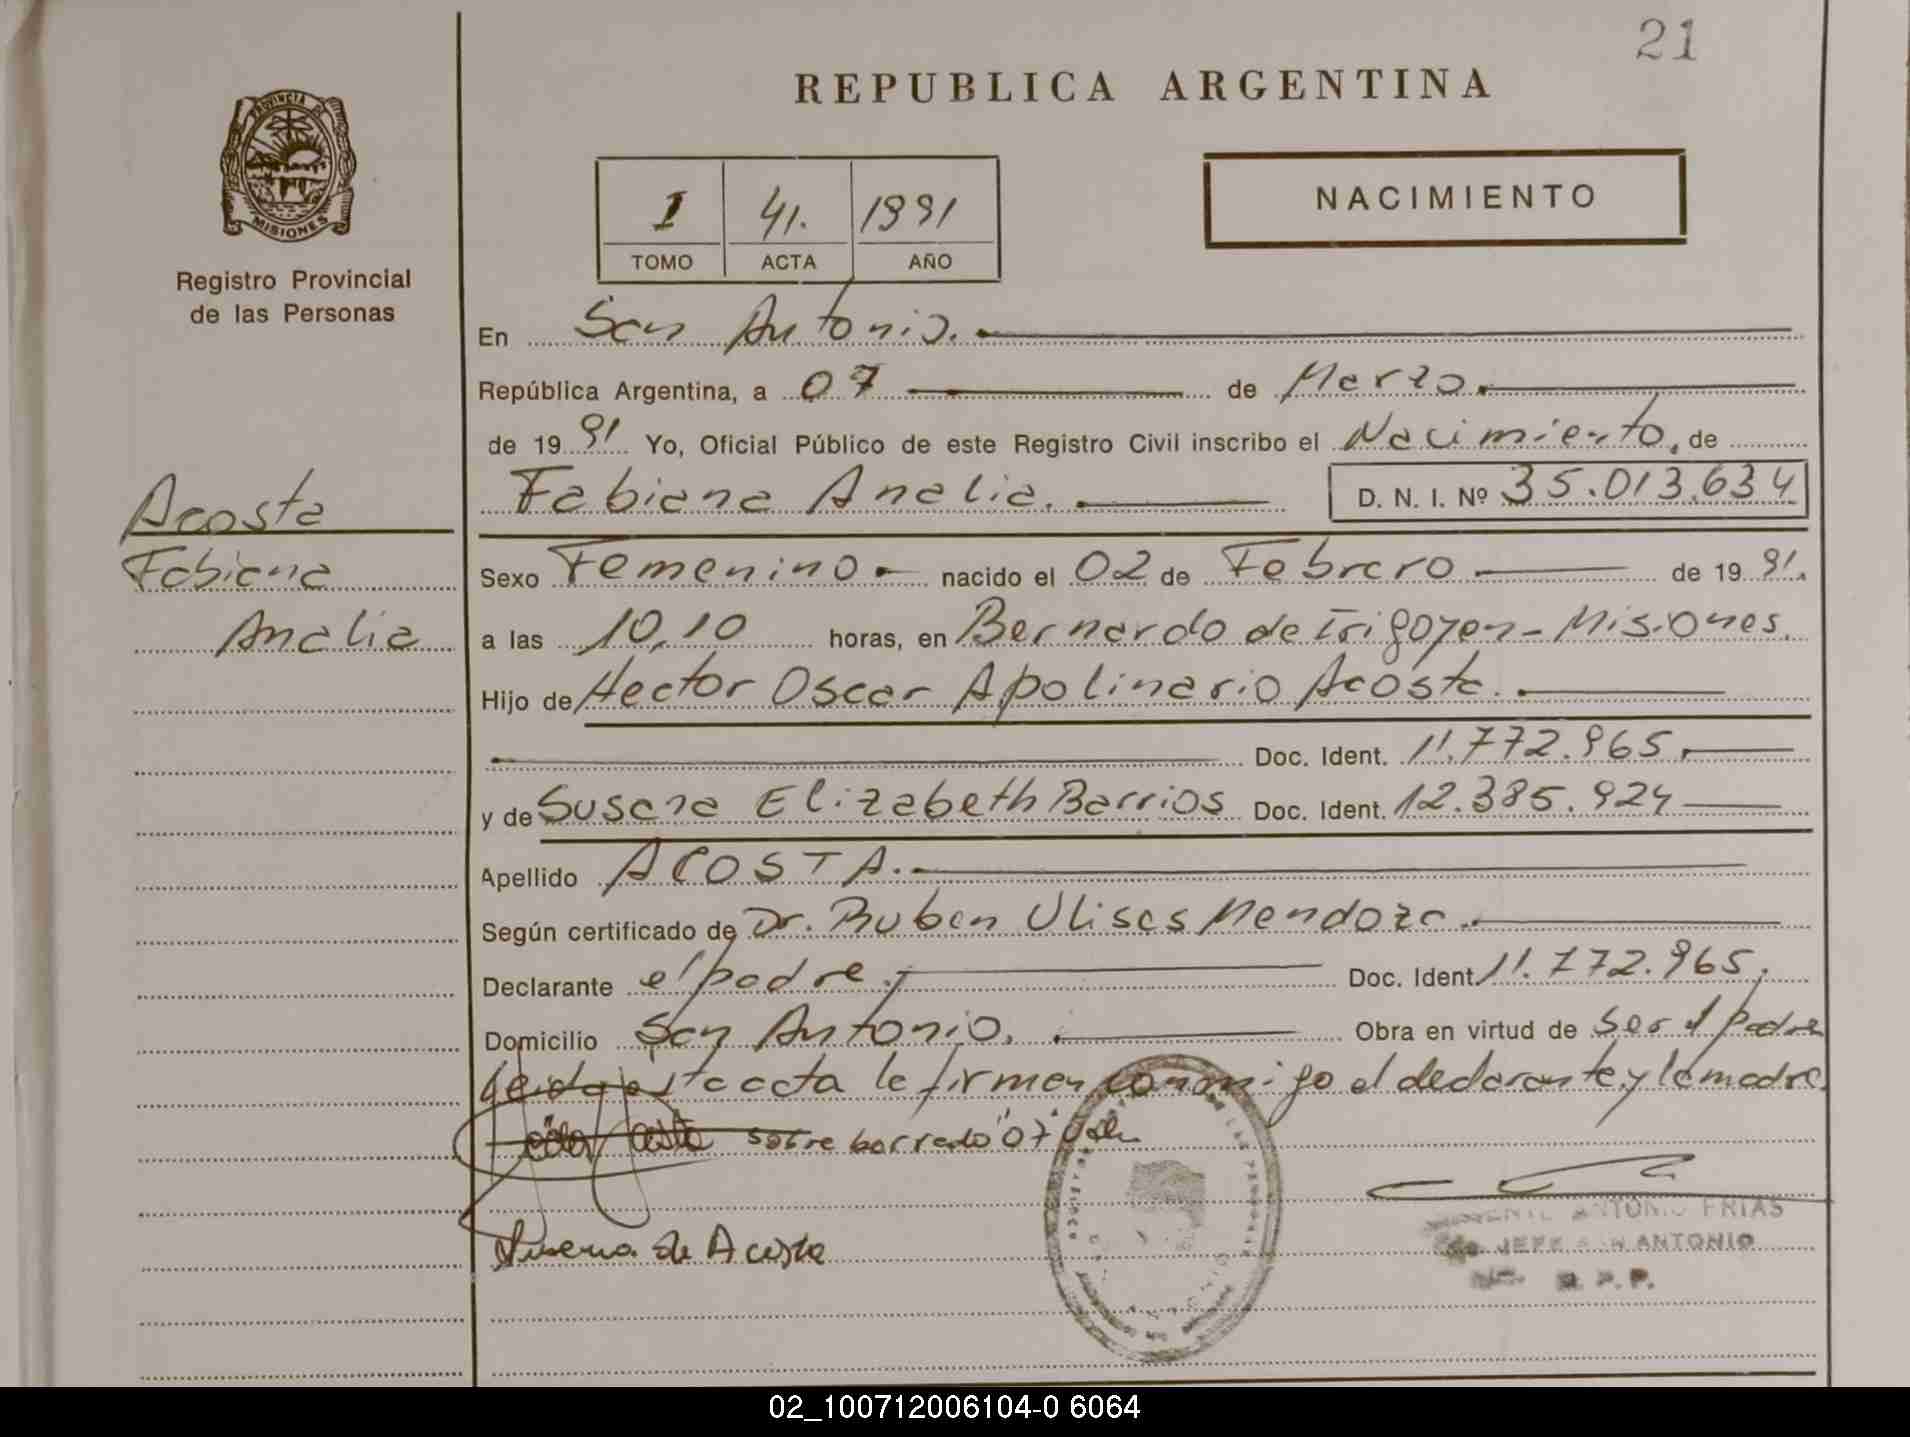 21
REPUBLICA ARGENTINA
PROVINCIA DE
MISIONES
Registro Provincial
de las Personas
I 41. 1991
TOMO ACTA AÑO
NACIMIENTO
En San Antonio.
República Argentina, a 07 de Marzo.
de 19 91 Yo, Oficial Público de este Registro Civil inscribo el Nacimiento, de
Fabiana Analia. D. N. I. Nº 35.013.634
Acosta
Fabiana
Analia
Sexo Femenino nacido el 02 de Febrero de 19 91.
a las 10,10 horas, en Bernardo de Irigoyen - Misiones.
Hijo de Hector Oscar Apolinario Acosta.
Doc. Ident. 11.772.965.
y de Susana Elizabeth Barrios Doc. Ident. 12.385.924
Apellido ACOSTA.
Según certificado de Dr. Ruben Ulises Mendoza.
Declarante el padre. Doc. Ident. 11.772.965.
Domicilio San Antonio. Obra en virtud de ser el padre
Leida esta acta la firman conmigo el declarante y la madre.
Acosta sobre borrado "07" Vale
de Acosta
ANTONIO FRIAS
JEFE SAN ANTONIO
R. P. P.
02_100712006104-0 6064